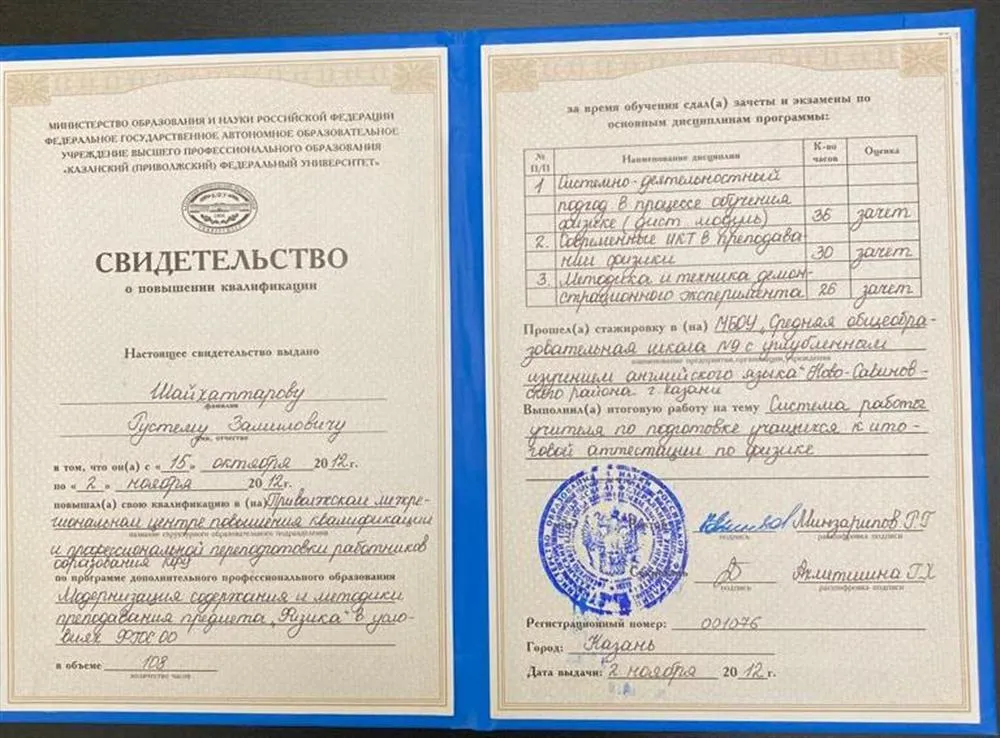 МИНИСТЕРСТВО ОБРАЗОВАНИЯ И НАУКИ РОССИЙСКОЙ ФЕДЕРАЦИИ
ФЕДЕРАЛЬНОЕ ГОСУДАРСТВЕННОЕ АВТОНОМНОЕ ОБРАЗОВАТЕЛЬНОЕ
УЧРЕЖДЕНИЕ ВЫСШЕГО ПРОФЕССИОНАЛЬНОГО ОБРАЗОВАНИЯ
«КАЗАНСКИЙ (ПРИВОЛЖСКИЙ) ФЕДЕРАЛЬНЫЙ УНИВЕРСИТЕТ»
СВИДЕТЕЛЬСТВО
о повышении квалификации
Настоящее свидетельство выдано
Шайхаттарову
фамилия
Рустему Замиловичу
имя, отчество
в том, что он(а) с «15» октября 2012г.
по «2» ноября 2012г.
повышал(а) свою квалификацию в (на) Приволжском межре-
гиональном центре повышения квалификации
название структурного образовательного подразделения
и профессиональной переподготовки работников
образования КФУ
по программе дополнительного профессионального образования
Модернизация содержания и методики
преподавания предмета „Физика“ в усло-
виях ФГОС ОО
в объеме 108
количество часов
за время обучения сдал(а) зачеты и экзамены по
основным дисциплинам программы:
№ П/П Наименование дисциплин К-во часов Оценка
1 Системно-деятельностный
подход в процессе обучения
физике (дист. модуль) 36 зачет
2. Современные ИКТ в преподава-
нии физики 30 зачет
3. Методика и техника демон-
страционного эксперимента 26 зачет
Прошел(а) стажировку в (на) МБОУ „Средняя общеобра-
зовательная школа №9 с углубленным
наименование предприятия, организации, учреждения
изучением английского языка“ Ново-Савинов-
ского района г. Казани
Выполнил(а) итоговую работу на тему Система работы
учителя по подготовке учащихся к ито-
говой аттестации по физике
Минзарипов Р.Г
подпись расшифровка подписи
Ахметшина Г.Х
подпись расшифровка подписи
Регистрационный номер: 001076
Город: Казань
Дата выдачи: 2 ноября 2012г.